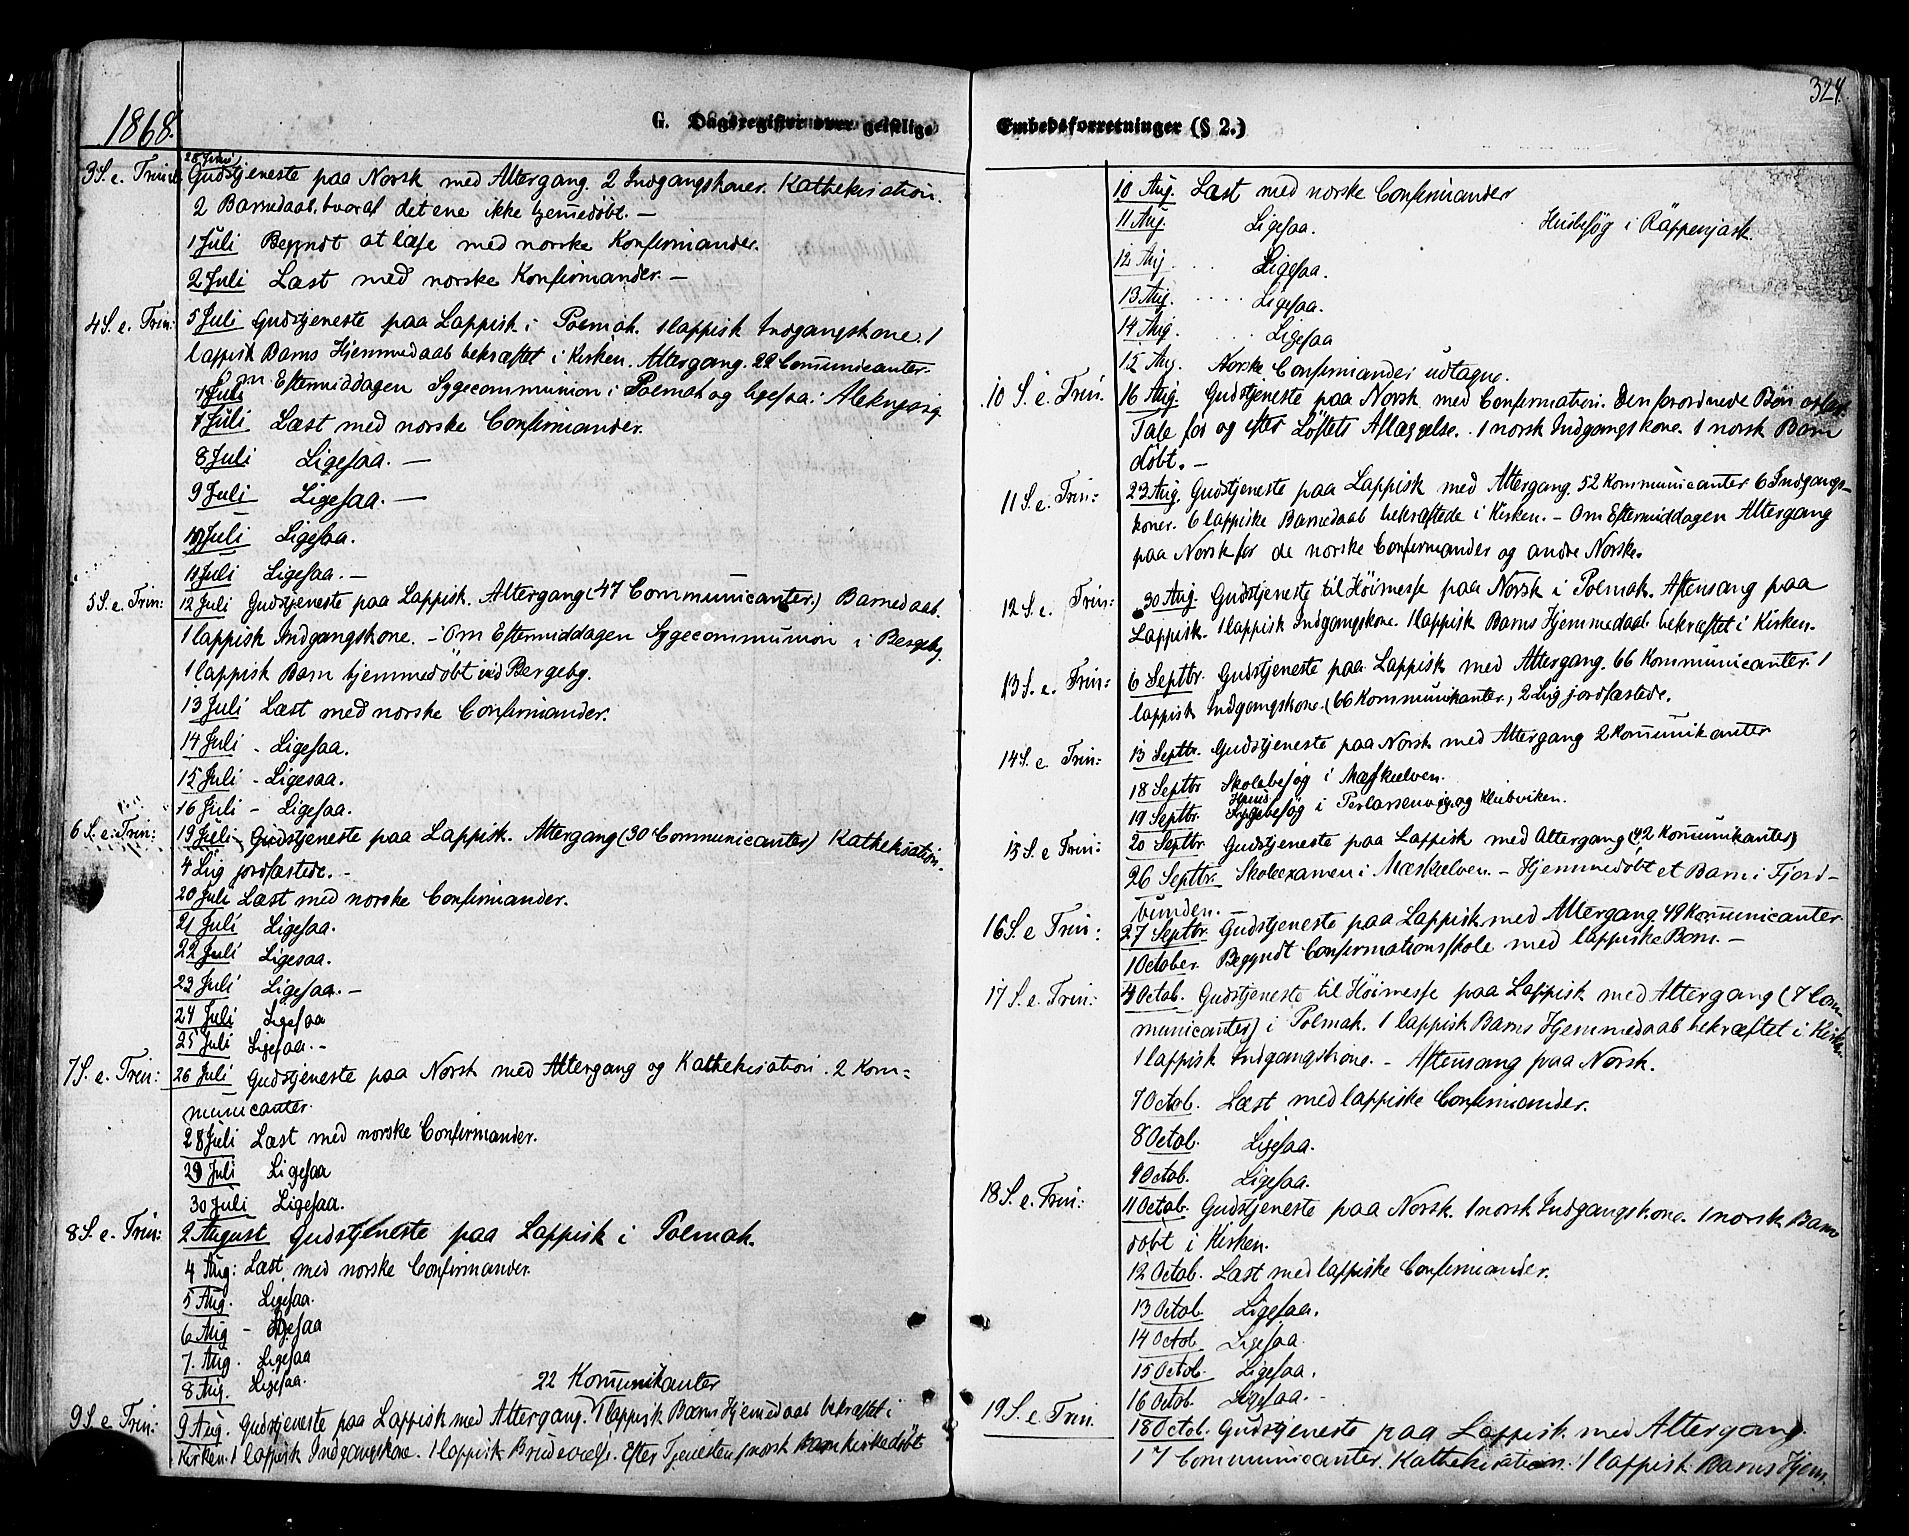 1868.
G. Dagsregister over geistlige
3 S. e. Trinit.
28 Juni
Gudstjeneste paa Norsk med Altergang. 2 Indgangskoner. Kathekisation.
2 Barnedaab, hvoraf det ene ikke hjemmedøbt. —
1 Juli Begyndt at læse med norske Konfirmander.
2 Juli Læst med norske Konfirmander. —
4 S. e. Trin: 5 Juli Gudstjeneste paa Lappisk i Polmak. 1 lappisk Indgangskone. 1
lappisk Barns Hjemmedaab bekræftet i Kirken. Altergang. 22 Communicanter.
Om Eftermiddagen Sygecommunion i Polmak og ligesaa i
7 Juli Læst med norske Confirmander.
8 Juli Ligesaa. —
9 Juli Ligesaa. —
10 Juli Ligesaa.
11 Juli Ligesaa. —
5 S. e. Trin: 12 Juli Gudstjeneste paa Lappisk. Altergang (47 Communicanter.) Barnedaab.
1 lappisk Indgangskone. – Om Eftermiddagen Sygecommunion i Bergeby.
1 lappisk Barn hjemmedøbt ved Bergeby.
13 Juli Læst med norske Confirmander.
14 Juli - Ligesaa.
15 Juli - Ligesaa.
16 Juli - Ligesaa.
6 S. e. Trin: 19 Juli Gudstjeneste paa Lappisk. Altergang (30 Communicanter) Kathekisation.
4 Liig jordfæstede. -
20 Juli Læst med norske Confirmander.
21 Juli Ligesaa.
22 Juli Ligesaa.
23 Juli Ligesaa. —
24 Juli Ligesaa
25 Juli Ligesaa. -
7 S. e. Trin: 26 Juli Gudstjeneste paa Norsk med Altergang og Kathekisation. 2 Kom=
municanter.
28 Juli Læst med norske Confirmander.
29 Juli Ligesaa
30 Juli Ligesaa.
8 S. e. Trin: 2 August Gudstjeneste paa Lappisk i Polmak.
4 Aug: Læst med norske Confirmander.
5 Aug. Ligesaa.
6 Aug - Ligesaa
7. Aug. Ligesaa
8 Aug. Ligesaa.
22 Kommunikanter
9 S. e. Trin: 9 Aug. Gudstjeneste paa Lappisk med Altergang. 1 lappisk Barns Hjemmedaab bekræftet i
Kirken. 1 lappisk Indgangskone. 1 lappisk Brudevielse. Efter Tjenesten 1 norsk Barn kirkedøbt
324.
Embedsforretninger (§ 2.)
10 Aug. Læst med norske Confirmander
11 Aug. Ligesaa. Husbesøg i
12 Aug. Ligesaa.
13 Aug. Ligesaa.
14 Aug. Ligesaa
15 Aug. Norske Confirmander udtagne.
10 S. e. Trin. 16 Aug. Gudstjeneste paa Norsk med Confirmation. Den forordnede Bøn
Tale før og efter Løftets Aflæggelse. 1 norsk Indgangskone. 1 norsk Barn
døbt. —
11 S. e. Trin: 23 Aug. Gudstjeneste paa Lappisk med Altergang. 52 Kommunicanter 6 Indgangs-
koner. 6 lappiske Barnedaab bekræftede i Kirken. – Om Eftermiddagen Altergang
paa Norsk for de norske Confirmander og andre Norske.
12 S. e. Trin: 30 Aug Gudstjeneste til Höimesse paa Norsk i Polmak. Aftensang paa
Lappisk. 1 lappisk Indgangskone. 1 lappisk Barns Hjemmedaab bekræftet i Kirken.
13 S. e. Trin: 6 Septbr. Gudstjeneste paa Lappisk med Altergang. 66 Kommunicanter. 1
lappisk Indgangskone. (66 Kommunikanter, 2 Lig jordfæstede.
14 S. e. Trin: 13 Septbr. Gudstjeneste paa Norsk med Altergang 2 Kommunikanter
18 Septbr Skolebesøg i Mæskelven.
19 Septbr. i Perlarsenvig og Klubviken.
15 S. e Trin: 20 Septbr. Gudstjeneste paa Lappisk med Altergang (42 Kommunikanter)
26 Septbr. Skoleexamen i Mæskelven. – Hjemmedøbt et Barn i Fjord-
bunden.
16 S. e Trin: 27 Septbr. Gudstjeneste paa Lappisk med Altergang 49 Kommunicanter
1 October. Begyndt Confirmationsskole med lappiske Børn. —
17 S. e. Trin: 4 Octob. Gudstjeneste til Höimesse paa Lappisk med Altergang (7 Com
municanter) i Polmak. 1 lappisk Barns Hjemmedaab bekræftet i Kirken.
1 lappisk Indgangskone. – Aftensang paa Norsk.
7 Octob. Læst med lappiske Confirmander.
8 Octob. Ligesaa.
9 Octob. Ligesaa.
18 S. e. Trin: 11 Octob. Gudstjeneste paa Norsk. 1 norsk Indgangskone. 1 norsk Barn
døbt i Kirken.
12 Octob. Læst med lappiske Confirmander.
13 Octob. Ligesaa.
14 Octob. Ligesaa.
15 Octob. Ligesaa.
16 Octob. Ligesaa. -
19 S. e. Trin. 18 Octob. Gudstjeneste paa Lappisk med Altergang.
17 Communicanter. Kathekisation. 1 lappisk Barns Hjem.